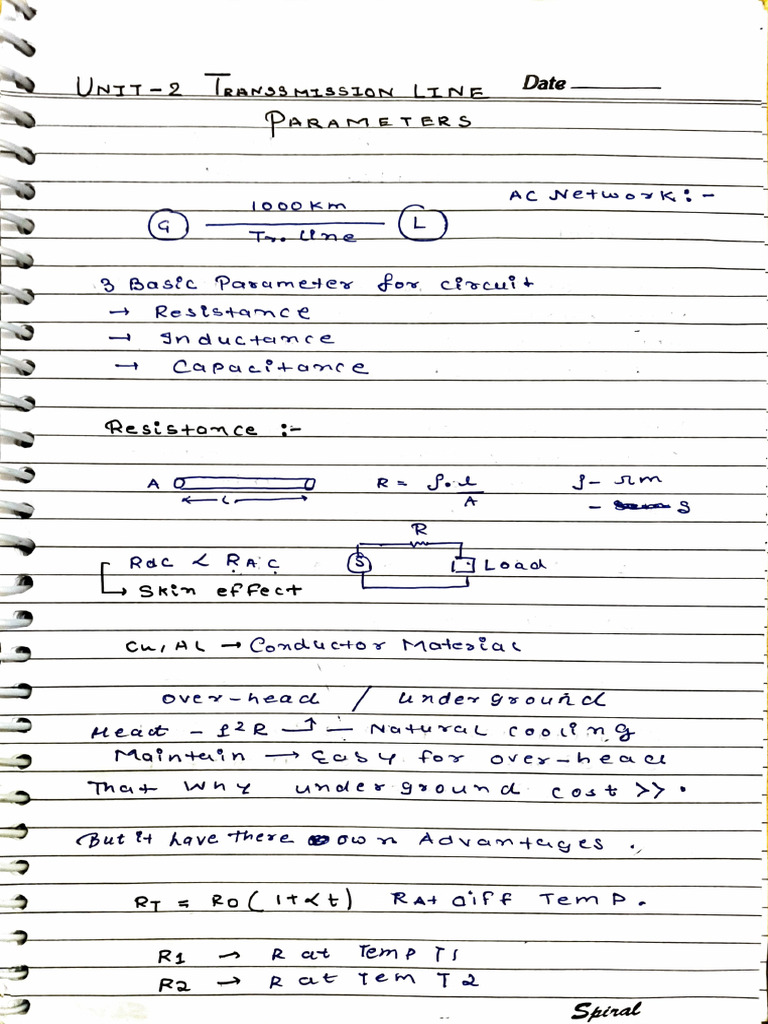 UNIT-2 TRANSSMISSION LINE Date
PARAMETERS
AC Network :-
1000 Km
G L
Tr. line
3 Basic Parameter for circuit
→ Resistance
→ Inductance
→ Capacitance
Resistance :-
A R = ρ.l/A ρ- Ωm
L - S
R
Rdc < RAC S Load
↳ Skin effect
Cu, AL → Conductor Material
over-head / underground
Heat - I²R ↑ - Natural cooling
Maintain → Easy for over-head
That why underground cost >> .
But it have there own Advantages .
RT = R0 (1+αt) R At diff Temp.
R1 → R at Temp T1
R2 → R at Tem T2
Spiral